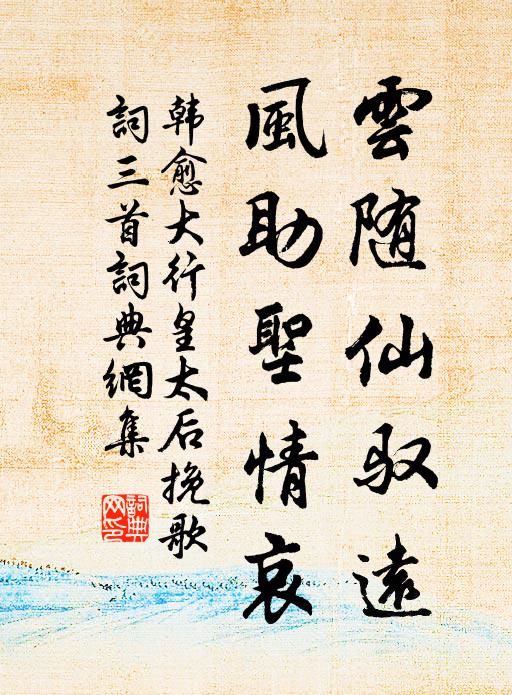 雲随仙驭遠
風助聖情哀
韩愈大行皇太后挽歌
詞三首詞典網集
詞典
网印